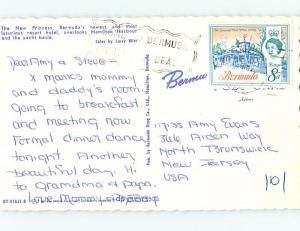 The New Princess, Bermuda's newest and most
luxurious resort hotel, overlooks Hamilton Harbour
and the yacht basin.
Color by
BERMUDA
Bermuda
8d
Dear Amy & Steve -
X marks mommy
and daddy's room.
going to breakfast
and meeting now.
Formal dinner dance
tonight. Another
beautiful day. Hi
to Grandma & Papa.
Love Mommy
Pub. by Bermuda Drug Co., Ltd., Hamilton, Bermuda
Address
Miss Amy Evans
Aiden Way
North Brunswick
New Jersey
USA
101